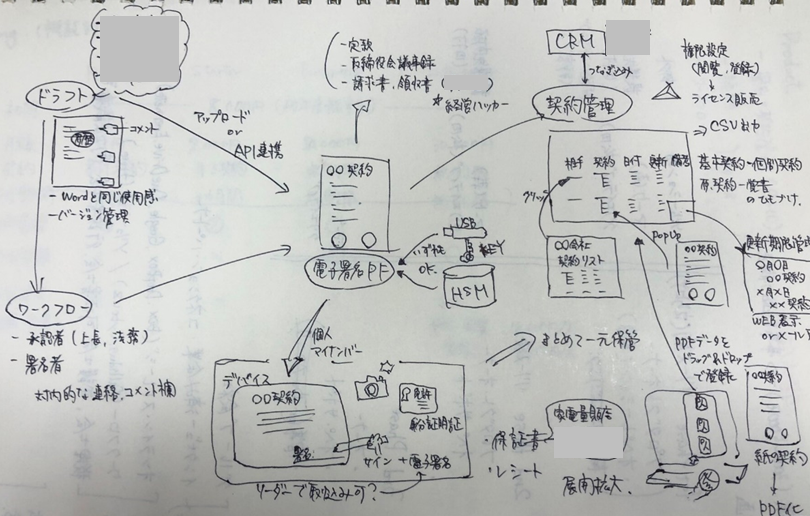 ドラフト
コメント
- Wordと同じ使用感
- バージョン管理
アップロード
or
API連携
ワークフロー
- 承認者(上長, 法務)
- 署名者
対内的な連絡, コメント欄
- 定款
- 取締役会議事録
- 請求書, 領収書
* 経営ハッカー
〇〇契約
電子署名PF
USB
KEY
いずれも
OK
HSM
個人
マイナンバー
デバイス
〇〇契約
署名
免許
身分証明証
サイン + 電子署名
リーダーで取込み可?
CRM
つなぎ込み
契約管理
権限設定
(閲覧, 登録)
ライセンス販売
⇒ CSV出力
相手 契約 日付 更新
クリック
基本契約 - 個別契約
原契約 - 覚書
のひもづけ.
〇〇会社
契約リスト
PopUp
〇〇契約
更新期限管理
〇月〇日
〇〇契約
×月×日
××契約
WEB表示
or メール
まとめて一元保管
PDFデータを
ドラッグ&ドロップ
で登録
家電量販店
・保証書
・レシート
展開拡大.
紙の契約
PDF化